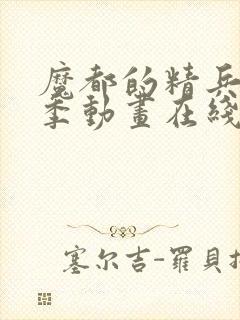 魔都的精兵
季動畫在綫
塞尔吉-羅貝